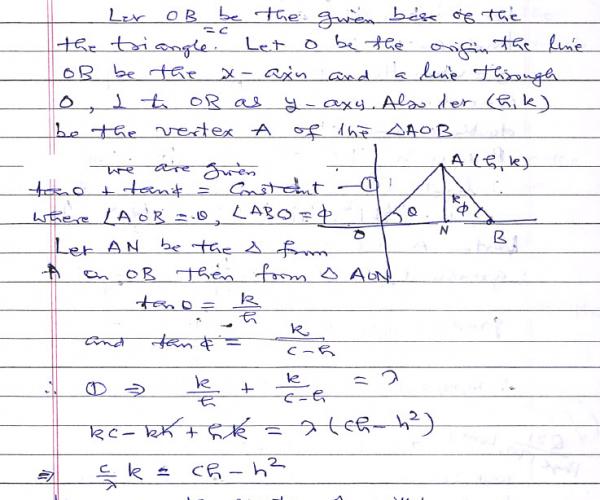 Let OB be the given base of the
= c
the triangle. Let O be the origin the line
OB be the x-axis and a line through
O, ⊥ to OB as y-axy. Also let (h, k)
be the vertex A of the △AOB
we are given
tan θ + tan ϕ = Constant — ①
where ∠AOB = θ, ∠ABO = ϕ
Let AN be the △ from
A on OB then from △ AON
tan θ = k/h
and tan ϕ = k/(c-h)
∴ ① ⇒ k/h + k/(c-h) = λ
kc - kh + hk = λ (ch - h²)
⇒ c/λ k = ch - h²
A (h, k)
k
θ
ϕ
O
N
B